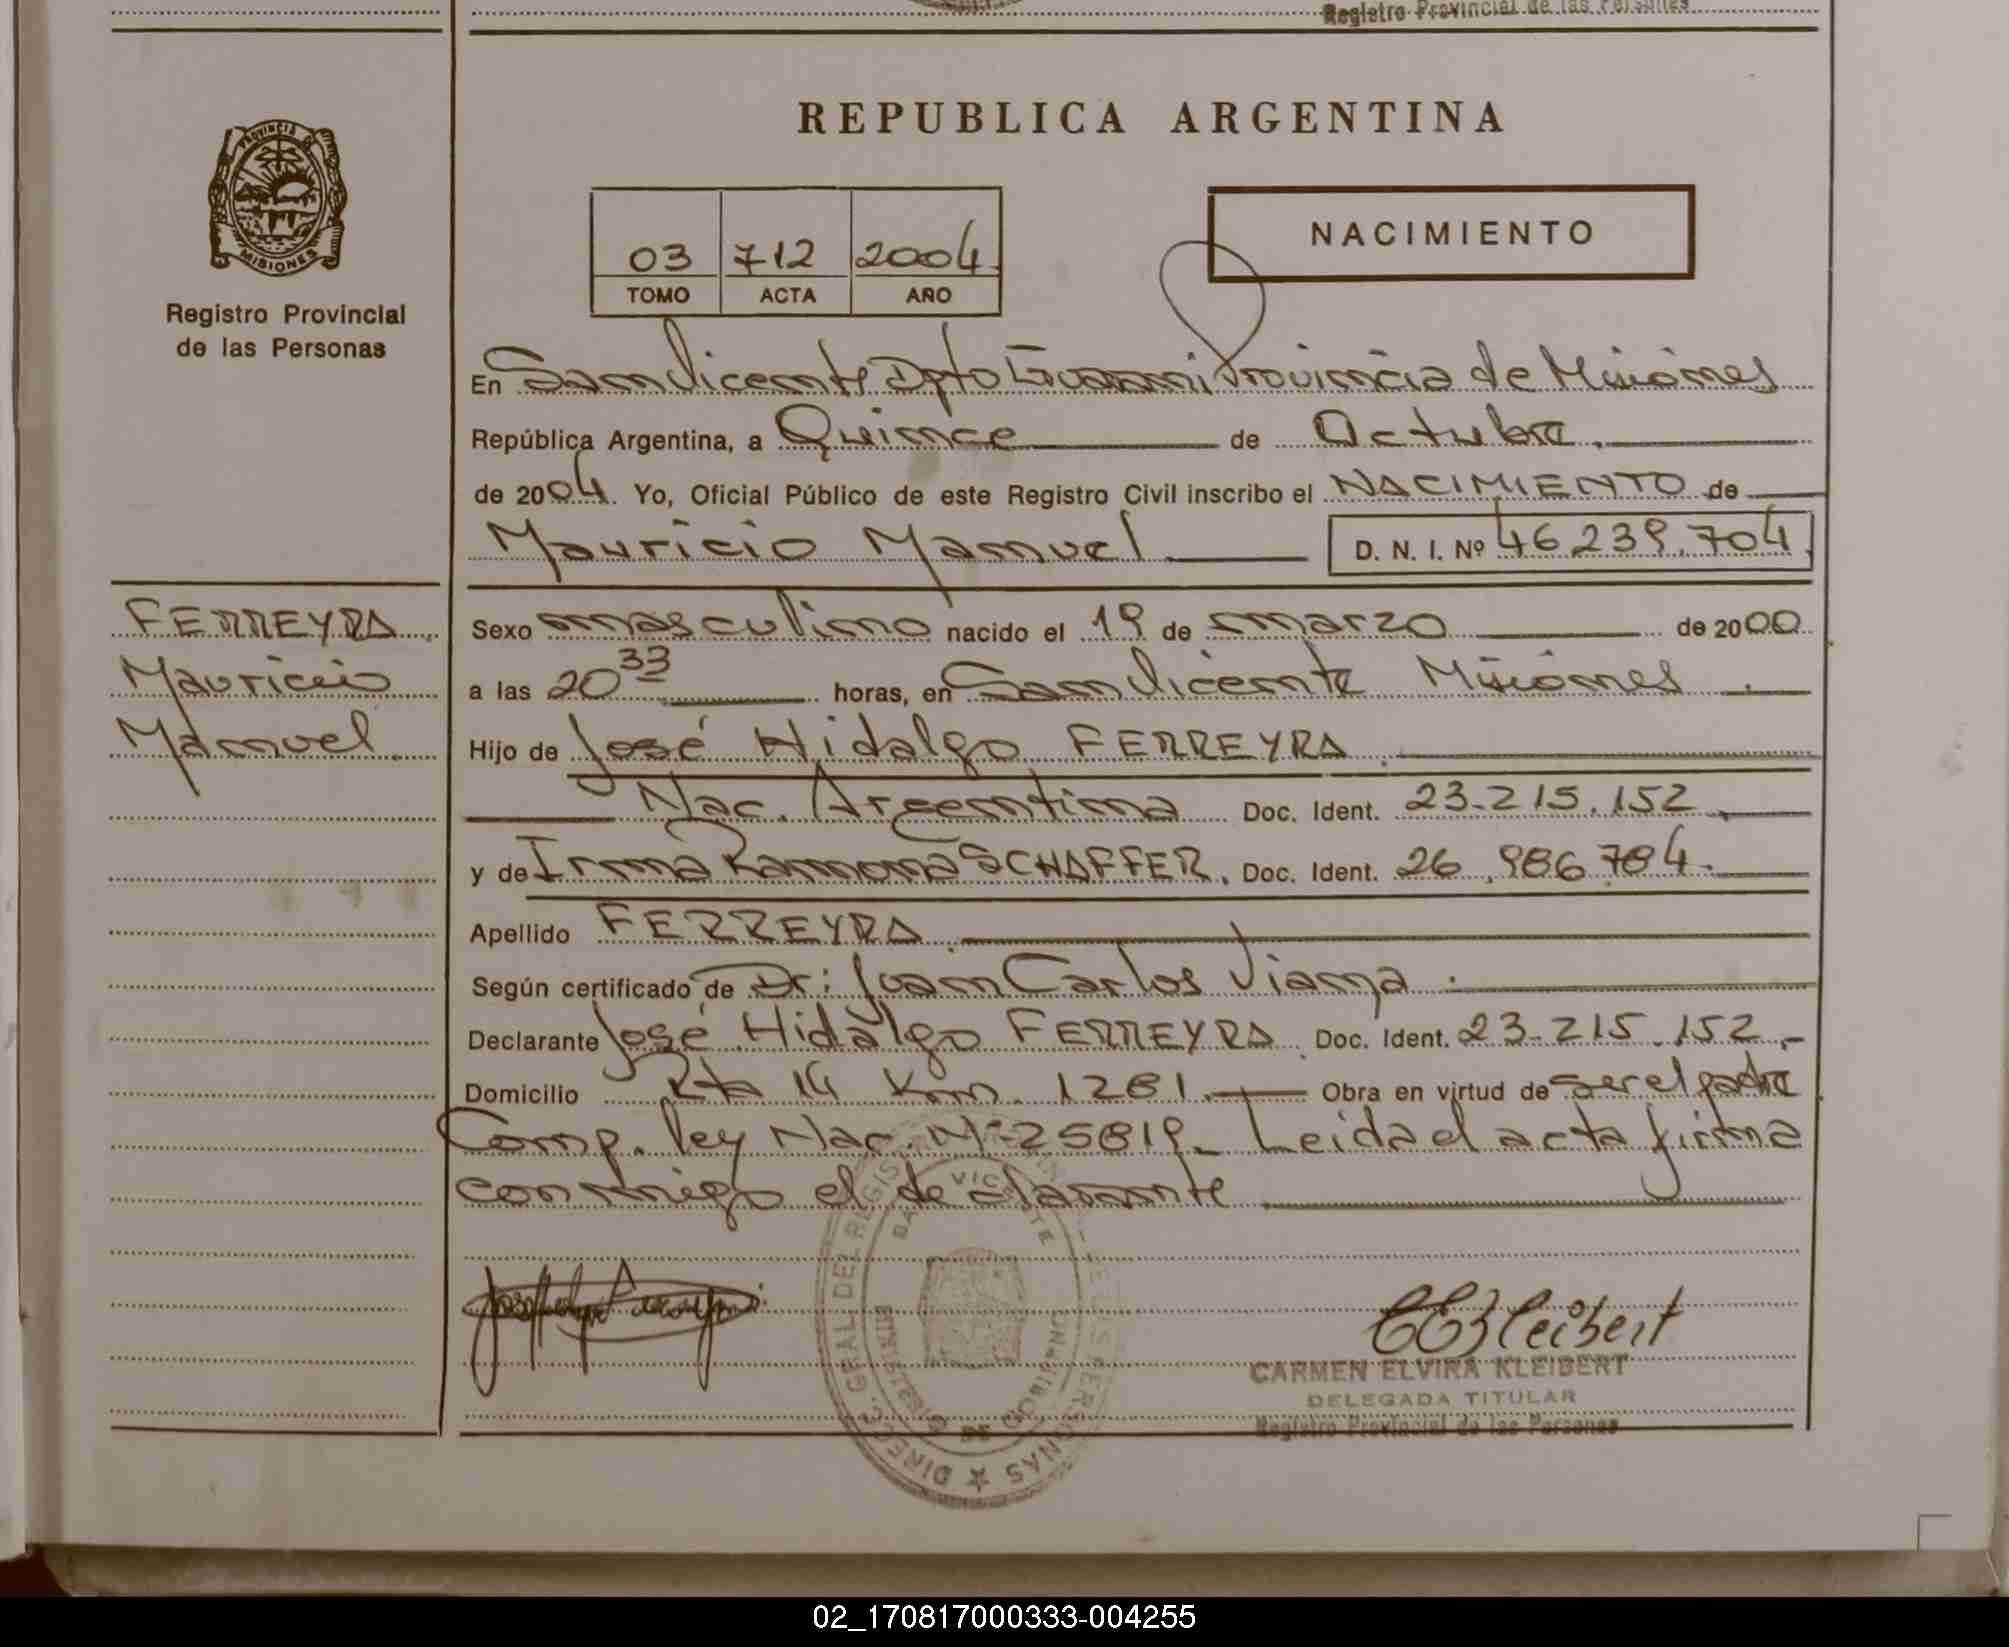 Registro Provincial de las Personas
REPUBLICA ARGENTINA
PROVINCIA DE
MISIONES
Registro Provincial
de las Personas
03 712 2004
TOMO ACTA AÑO
NACIMIENTO
En San Vicente Dpto Guarani Provincia de Misiones
República Argentina, a Quince de Octubre.
de 2004. Yo, Oficial Público de este Registro Civil inscribo el NACIMIENTO de
Mauricio Manuel D. N. I. Nº 46.239.704
FERREYRA
Mauricio
Manuel
Sexo masculino nacido el 19 de marzo de 2000
a las 20 33 horas, en San Vicente Misiones.
Hijo de José Hidalgo FERREYRA.
Nac. Argentina Doc. Ident. 23.215.152
y de Irma Ramona SCHAFFER. Doc. Ident. 26.986.784.
Apellido FERREYRA.
Según certificado de Dr: Juan Carlos Viana.
Declarante José Hidalgo FERREYRA Doc. Ident. 23.215.152.-
Domicilio Rta 14 Km. 1281. Obra en virtud de ser el padre
Comp. ley Nac. Nº 25819- Leida el acta firma
conmigo el declarante
DIREC. GRAL. DEL REGISTRO PERSONAS
VICENTE
CEKleibert
CARMEN ELVIRA KLEIBERT
DELEGADA TITULAR
Registro Provincial de las Personas
02_170817000333-004255